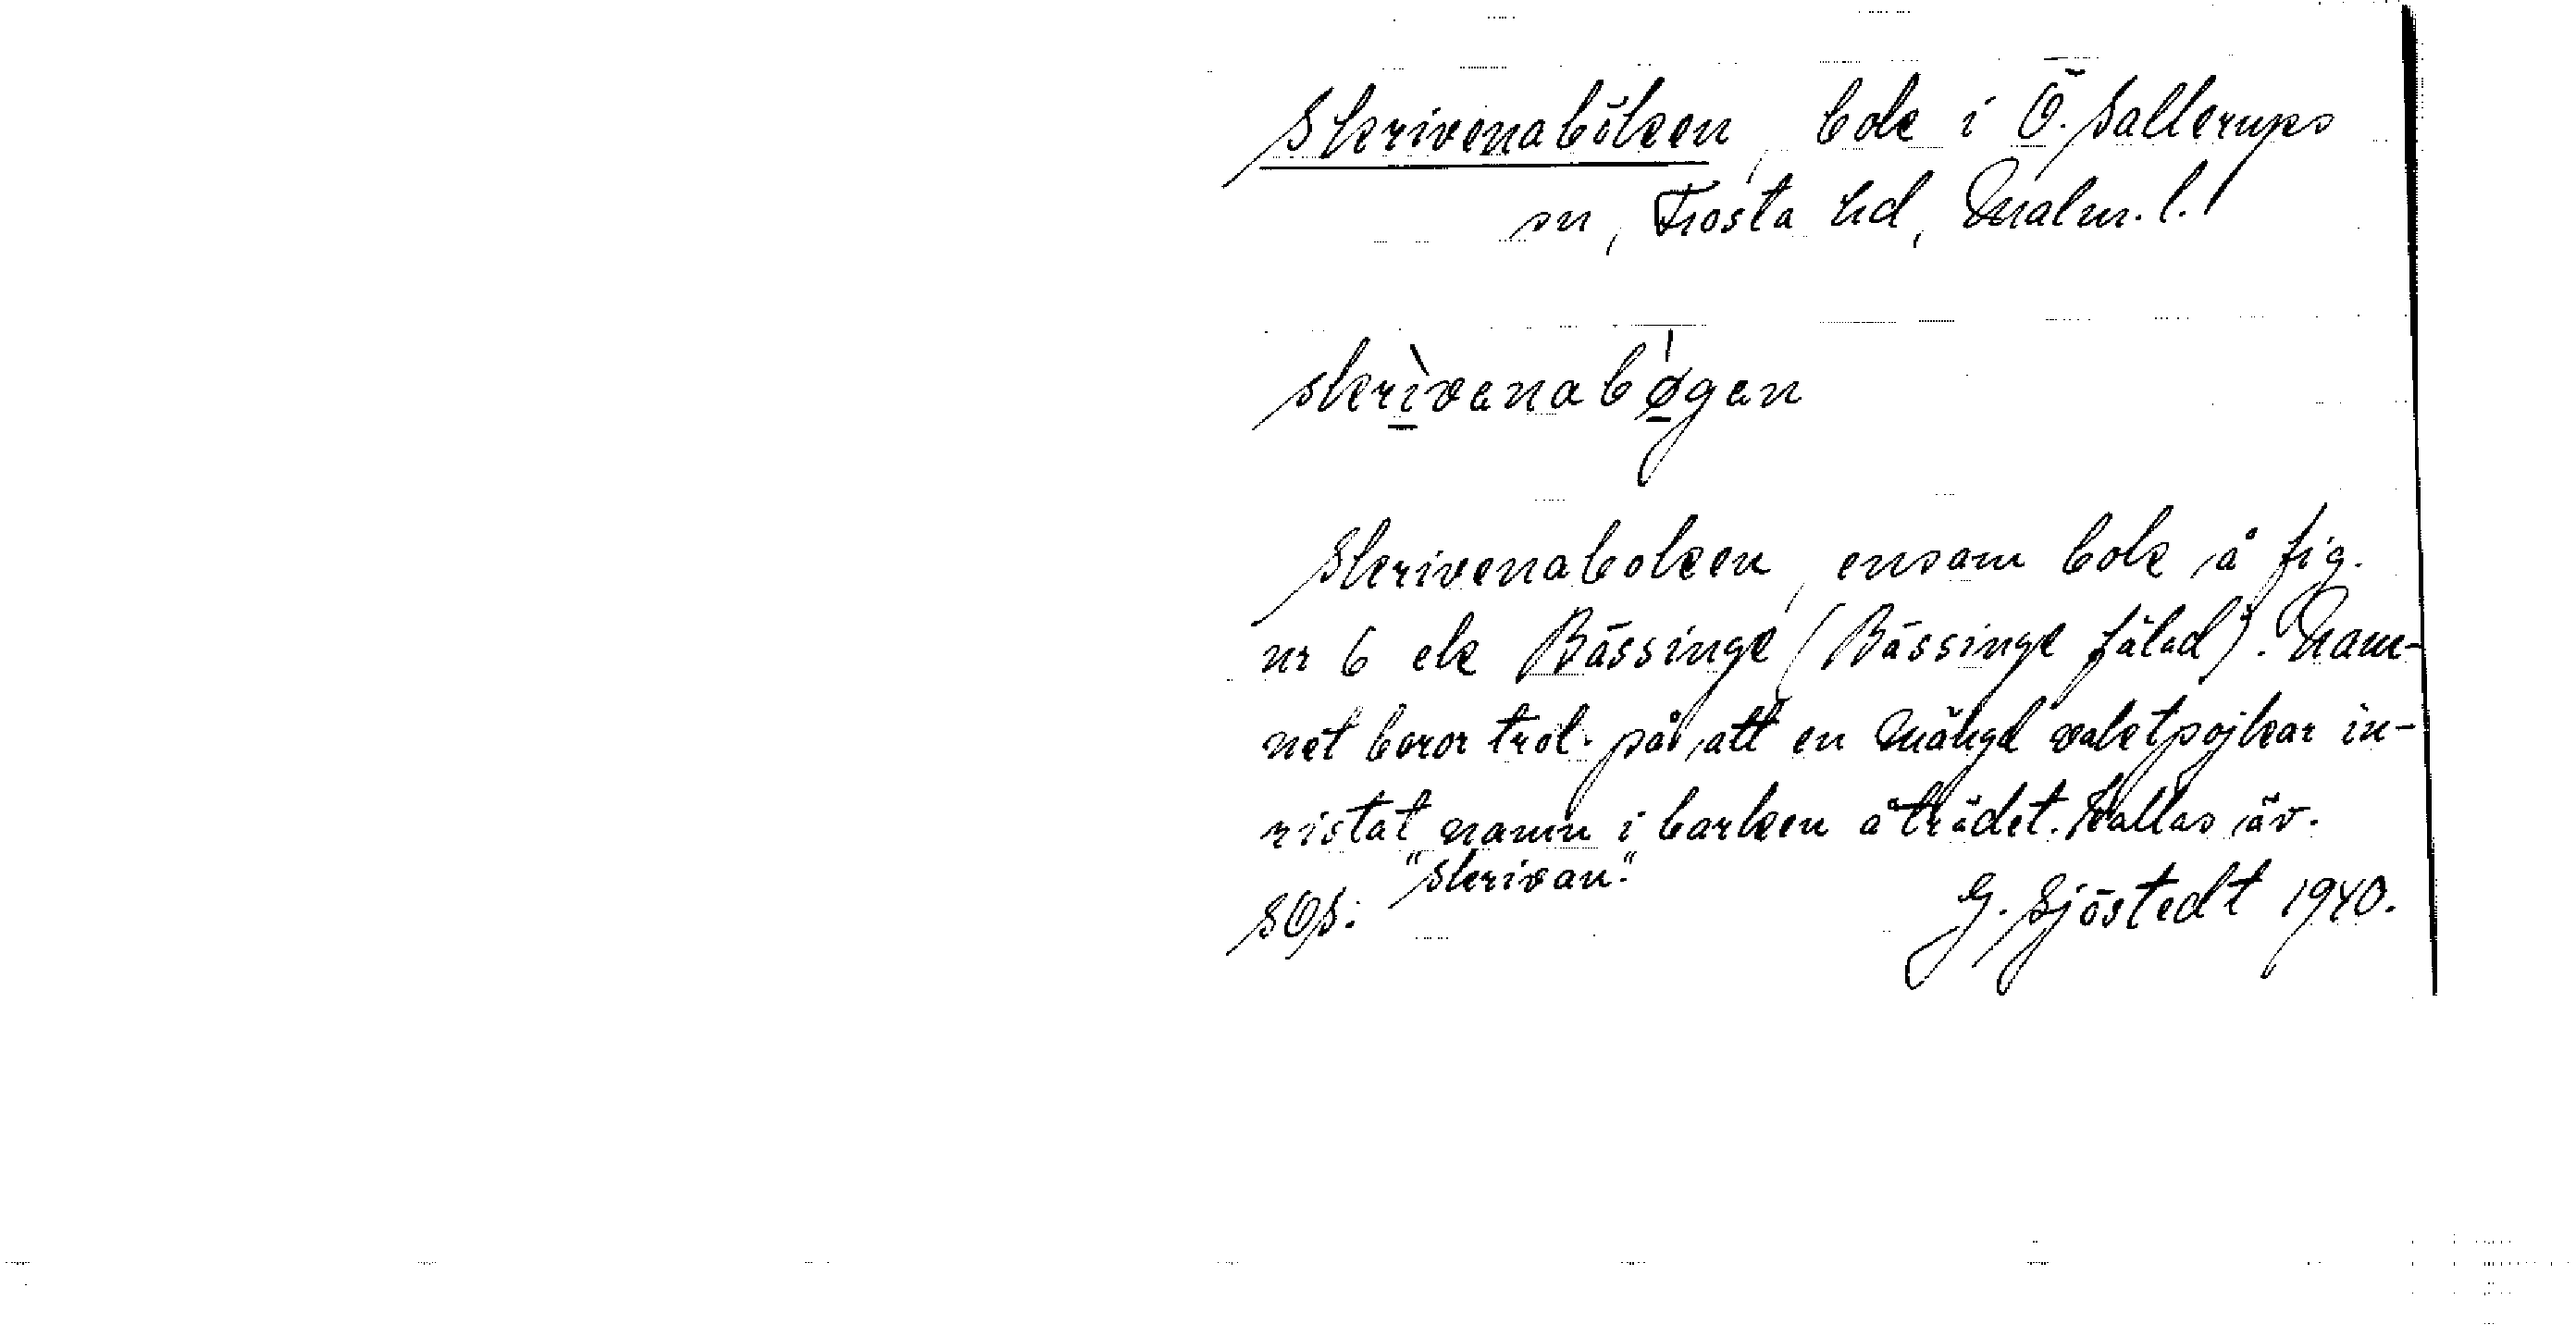 Skrivenaböken, bok i Ö. Sallerups
sn, Frosta hd, Malm. l.
skrìvanabø̀gan
Skrivenaboken, ensam bok å fig.
nr 6 ek Bässinge (Bässinge fälad). Nam-
net beror trol. på att en mängd vaktpojkar in-
ristat namn i barken å trädet. Kallas äv.
"Skrivan."
SOS. G. Sjöstedt 1940.